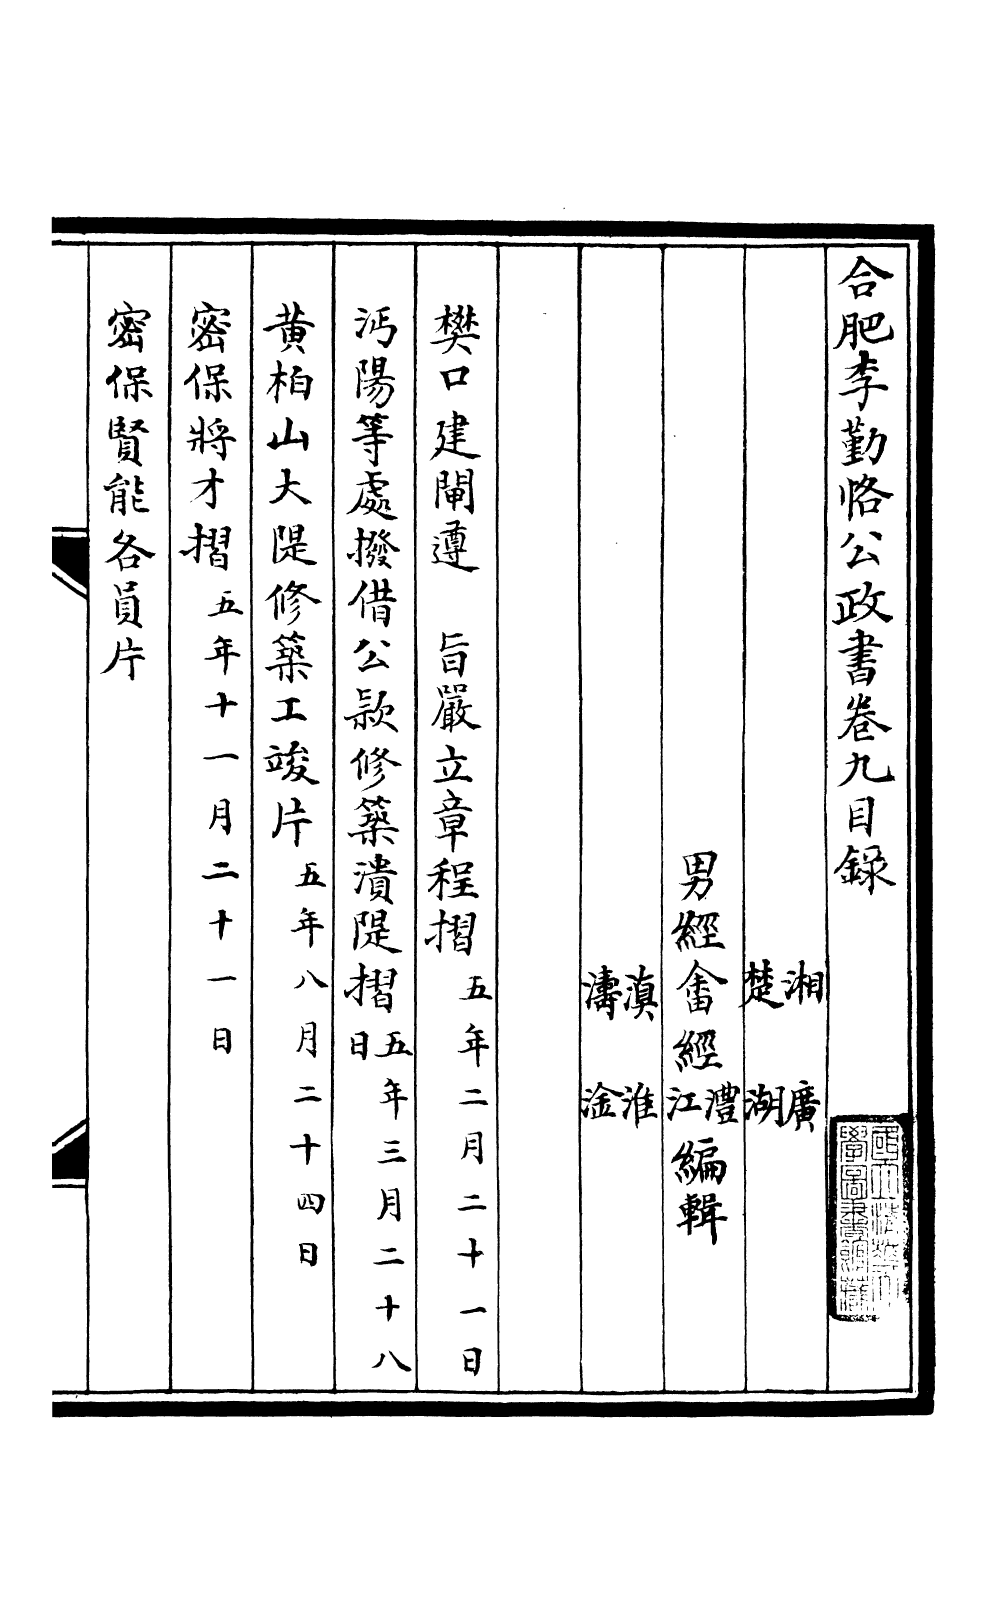 合肥李勤恪公政書卷九目錄
國立清華大
學圖書館藏
湘　廣
楚　湖
男經畬經澧江編輯
滇　淮
濤　淦
樊口建閘遵　旨嚴立章程摺五年二月二十一日
沔陽等處撥借公款修築潰隄摺五年三月二十八日
黃柏山大隄修築工竣片五年八月二十四日
密保將才摺五年十一月二十一日
密保賢能各員片